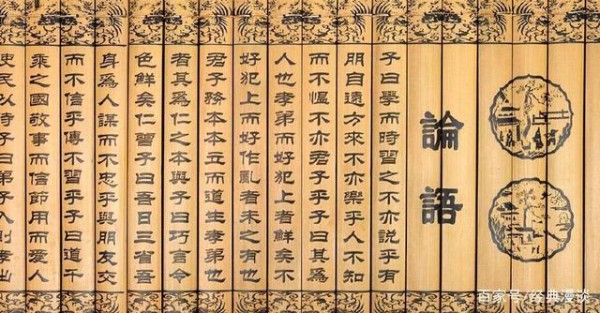 論語
子曰學而時習之不亦說乎有
朋自遠方來不亦樂乎人不知
而不慍不亦君子乎子曰其爲
人也孝弟而好犯上者鮮矣不
好犯上而好作亂者未之有也
君子務本本立而道生孝弟也
者其爲仁之本與子曰巧言令
色鮮矣仁曾子曰吾日三省吾
身爲人謀而不忠乎與朋友交
而不信乎傳不習乎子曰道千
乘之國敬事而信節用而愛人
使民以時子曰弟子入則孝出
百家号/经典漫谈